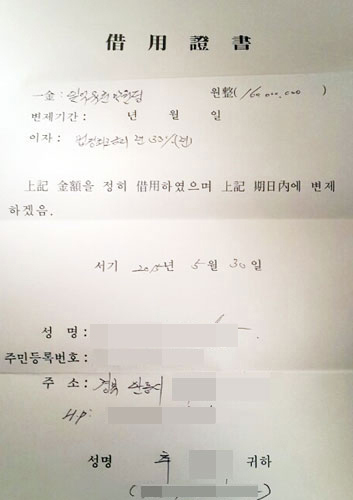 借用證書
一金: 일억육천만원정 원整(160,000,000)
변제기간: 년 월 일
이자: 법정최고금리 연 33%(연)
上記 金額을 정히 借用하였으며 上記 期日內에 변제
하겠음.
서기 2015년 5월 30일
성명:
주민등록번호:
주소: 경북 안동시
H.P:
성명 추 귀하
( )